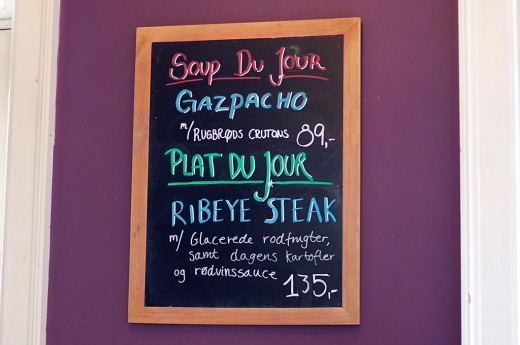 Soup Du Jour
GAZPACHO
m/RUGBRØDS CRUTONS 89,-
PLAT DU JOUR
RIBEYE STEAK
m/ Glacerede rodfrugter,
samt dagens kartofler
og rødvinssauce 135,-